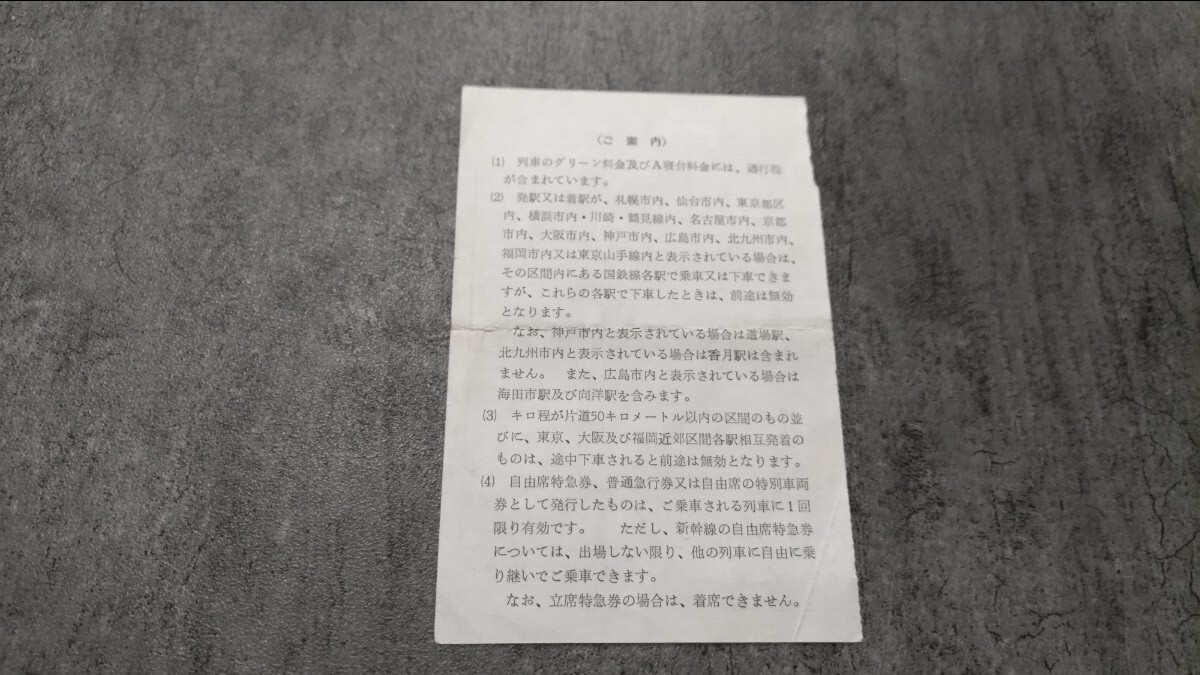 (ご案内)
(1) 列車のグリーン料金及びA寝台料金には、通行税
が含まれています。
(2) 発駅又は着駅が、札幌市内、仙台市内、東京都区
内、横浜市内・川崎・鶴見線内、名古屋市内、京都
市内、大阪市内、神戸市内、広島市内、北九州市内、
福岡市内又は東京山手線内と表示されている場合は、
その区間内にある国鉄線各駅で乗車又は下車できま
すが、これらの各駅で下車したときは、前途は無効
となります。
なお、神戸市内と表示されている場合は道場駅、
北九州市内と表示されている場合は香月駅は含まれ
ません。 また、広島市内と表示されている場合は
海田市駅及び向洋駅を含みます。
(3) キロ程が片道50キロメートル以内の区間のもの並
びに、東京、大阪及び福岡近郊区間各駅相互発着の
ものは、途中下車されると前途は無効となります。
(4) 自由席特急券、普通急行券又は自由席の特別車両
券として発行したものは、ご乗車される列車に1回
限り有効です。 ただし、新幹線の自由席特急券
については、出場しない限り、他の列車に自由に乗
り継いでご乗車できます。
なお、立席特急券の場合は、着席できません。